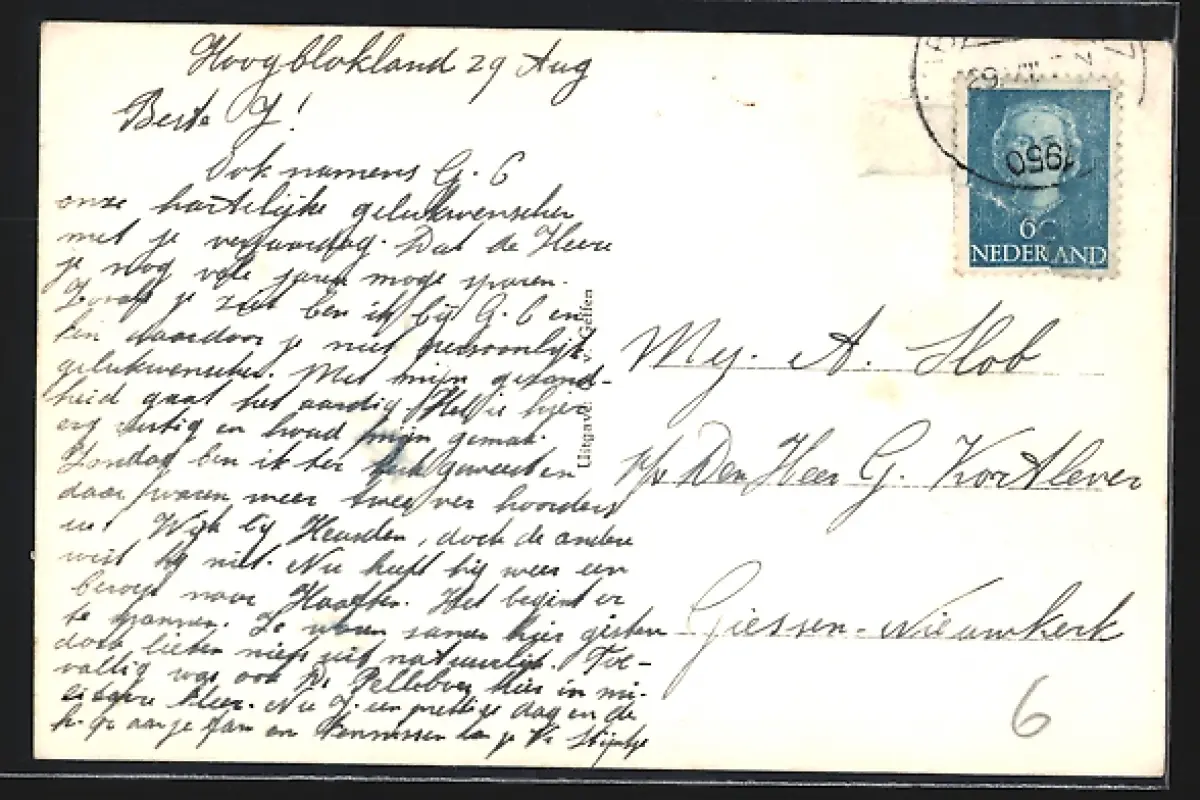 Hoogblokland 29 Aug
Beste J!
Ook namens G. C
onze hartelijke gelukwenschen
met je verjaardag. Dat de Heere
je nog vele jaren moge sparen.
Zooals je ziet ben ik bij G. C en
kan daardoor je niet persoonlijk
gelukwenschen. Met mijn gezond-
heid gaat het aardig. Het is hier
erg rustig en houd mijn gemak.
Zondag ben ik ter kerk geweest en
daar waren weer twee ver hoorders
uit Wijk bij Heusden, doch de andere
weet hij niet. Nu heeft hij weer een
beroep naar Haaften. Het begint er
te spannen. Ze waren samen hier gisteren
doch lieten niets uit natuurlijk. Toe-
vallig was ook Ds. Pellebver hier in mi-
kleer. Nu J. een prettige dag en de
h. gr. aan je fam en kennissen van je Vr. Stijntje
Uitgave: v. Gelfen
Mej. A. Slob
p/a Den Heer G. Kortlever
Giessen-Nieuwkerk
6
1950
6 C
NEDERLAND